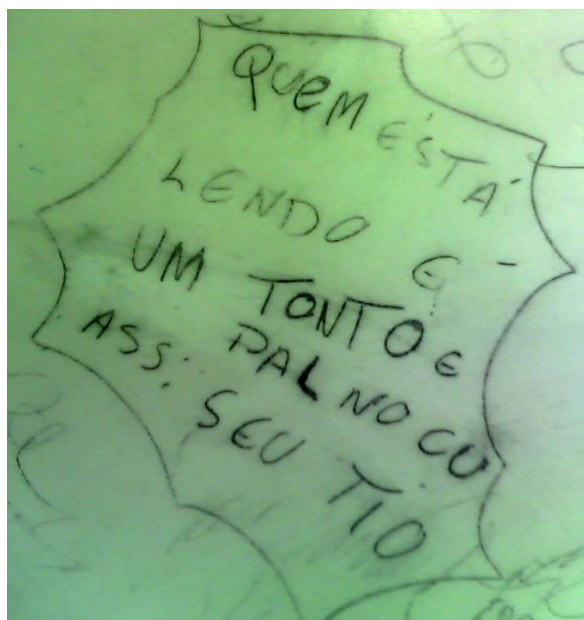 QUEM ESTÁ
LENDO É
UM TONTO E
PAL NO CU
ASS: SEU TIO